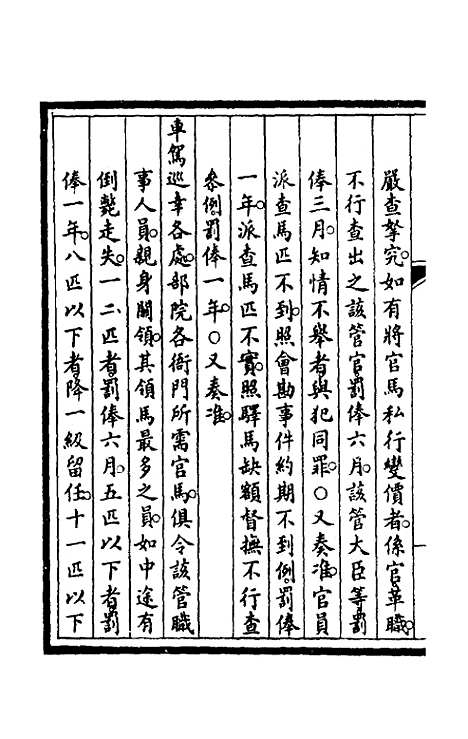 嚴查拏究。如有將官馬私行變價者。係官革職。
不行查出之該管官。罰俸六月。該管大臣等罰
俸三月。知情不舉者。與犯同罪。○又奏准。官員
派查馬匹不到。照會勘事件約期不到例。罰俸
一年。派查馬匹不實。照驛馬缺額督撫不行查
叅例。罰俸一年。○又奏准。
車駕巡幸各處。部院各衙門所需官馬。俱令該管職
事人員。親身關領。其領馬最多之員。如中途有
倒斃走失。一二匹者。罰俸六月。五匹以下者。罰
俸一年。八匹以下者。降一級留任。十一匹以下